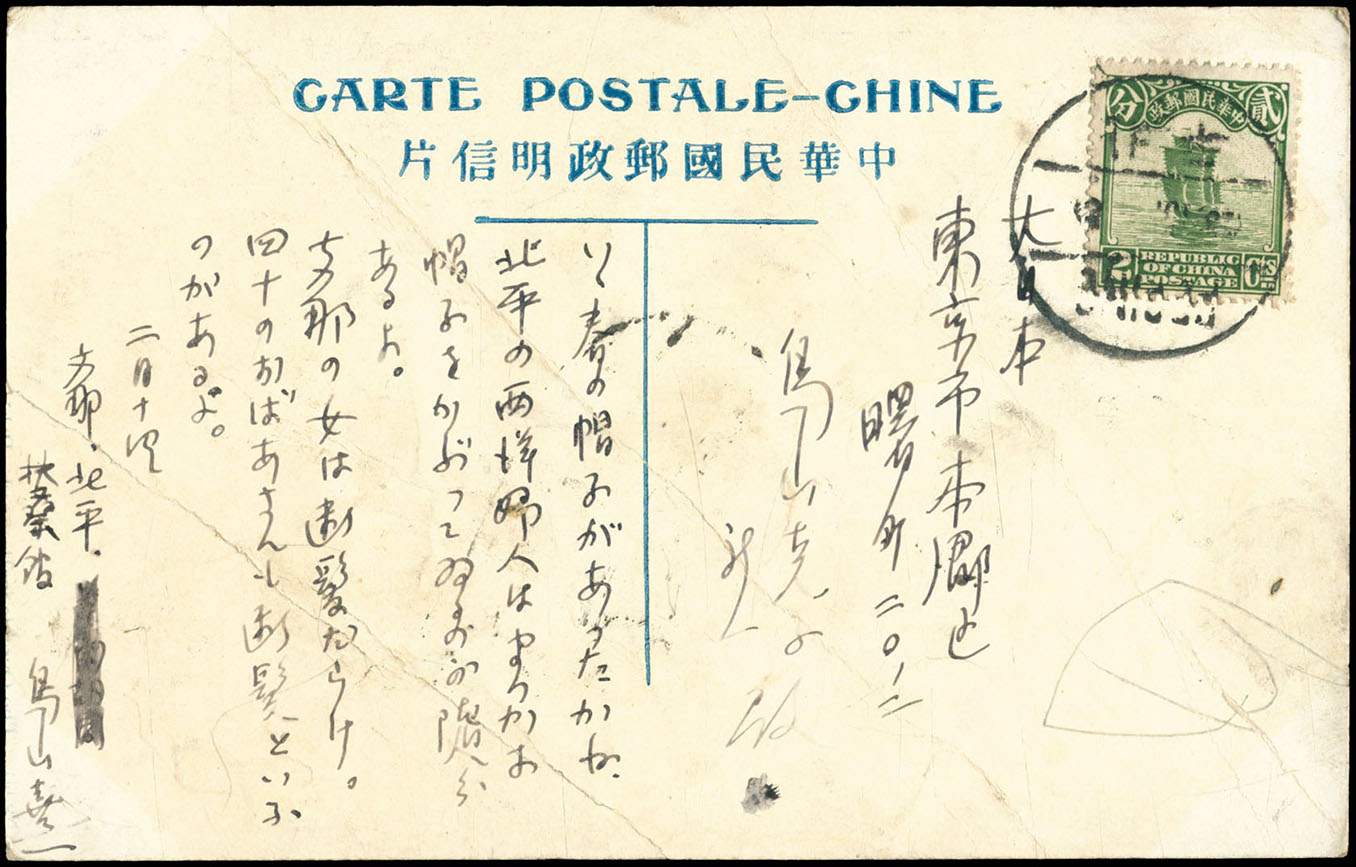 CARTE POSTALE-CHINE
中華民國郵政明信片
中華民國郵政
貳
分
2
REPUBLIC
OF CHINA
POSTAGE
CTS
PEPING
大日本
東京市本郷区
曙町二〇ノ二
鳥山
春の帽子があつたかね、
北平の西洋婦人はまつかな
帽子をかぶつてゐるのが随分
あるよ。
支那の女は断髪だらけ。
四十のおばあさんも断髪といふ
のがあるよ。
二月十
支那・北平・
扶桑館 鳥山喜一